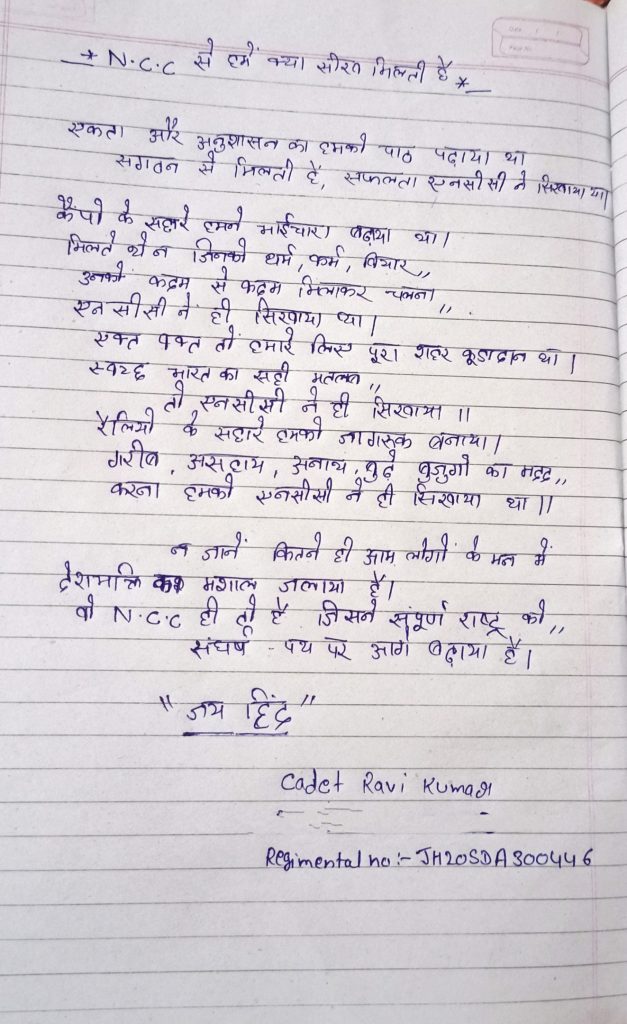 * N.C.C से हमें क्या सीख मिलती है *
एकता और अनुशासन का हमको पाठ पढ़ाया था
सगठन से मिलती है, सफलता एनसीसी ने सिखाया था।
कैंपो के सहारे हमने भाईचारा बढ़ाया था।
मिलते थे न जिनको धर्म, कर्म, विचार,,
उनको कदम से कदम मिलाकर चलना,,
एनसीसी नें ही सिखाया था।
एक वक्त तो हमारे लिए पूरा शहर कूडादान था।
स्वच्छ भारत का सही मतलब,,
तो एनसीसी ने ही सिखाया ॥
रैलियो के सहारे हमको जागरूक बनाया।
गरीब, असहाय, अनाथ, बुढ़े बुजुर्गो का मदद,,
करना हमको एनसीसी ने ही सिखाया था ॥
न जानें कितने ही आम लोगों के मन में
देशभक्ति का मशाल जलाया है।
वो N.C.C ही तो है जिसने संपूर्ण राष्ट्र को,,
संघर्ष - पथ पर आगे बढ़ाया है।
"जय हिंद"
Cadet Ravi Kumar
Regimental no:- JH20SDA300446